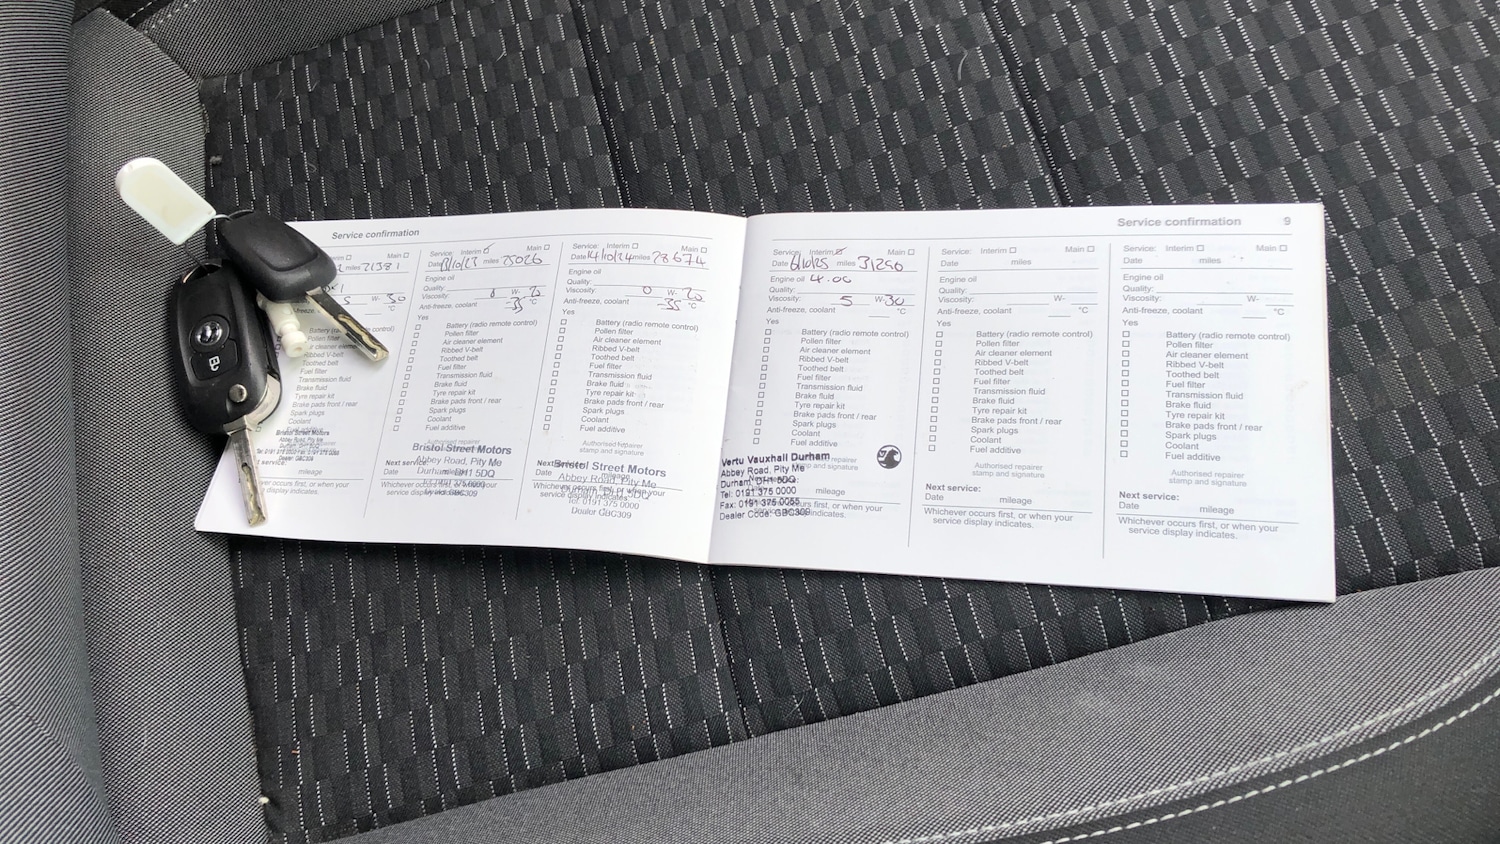 Service confirmation
miles 21381
W- 30
Battery (radio remote control)
Pollen filter
Air cleaner element
Ribbed V-belt
Toothed belt
Fuel filter
Transmission fluid
Brake fluid
Tyre repair kit
Brake pads front / rear
Spark plugs
Coolant
Bristol Street Motors
Abbey Road, Pity Me
Tel: 0191 375 0000 Fax: 0191 375 0055
Dealer Code: GBC309
mileage
Whichever occurs first, or when your
service display indicates.
Service: Interim Main
Date miles 25026
Engine oil
Quality:
Viscosity:
Anti-freeze, coolant -35 °C
Yes
Battery (radio remote control)
Pollen filter
Air cleaner element
Ribbed V-belt
Toothed belt
Fuel filter
Transmission fluid
Brake fluid
Tyre repair kit
Brake pads front / rear
Spark plugs
Coolant
Fuel additive
Authorised repairer
Bristol Street Motors
Abbey Road, Pity Me
Next service:
Date mileage
Whichever occurs first, or when your
service display indicates.
Service: Interim Main
Date 14/10/24 miles 28674
Engine oil
Quality:
Viscosity: 0 W- 20
Anti-freeze, coolant -35 °C
Yes
Battery (radio remote control)
Pollen filter
Air cleaner element
Ribbed V-belt
Toothed belt
Fuel filter
Transmission fluid
Brake fluid
Tyre repair kit
Brake pads front / rear
Spark plugs
Coolant
Fuel additive
Authorised repairer
stamp and signature
Bristol Street Motors
Abbey Road, Pity Me
Durham, DH1 5DQ
Tel: 0191 375 0000
Dealer GBC309
Next service:
Date mileage
Whichever occurs first, or when your
service display indicates.
Service confirmation 9
Service: Interim Main
Date miles 31290
Engine oil 4.00
Quality:
Viscosity: 5 W-30
Anti-freeze, coolant °C
Yes
Battery (radio remote control)
Pollen filter
Air cleaner element
Ribbed V-belt
Toothed belt
Fuel filter
Transmission fluid
Brake fluid
Tyre repair kit
Brake pads front / rear
Spark plugs
Coolant
Fuel additive
Vertu Vauxhall Durham
Abbey Road, Pity Me
Durham, DH1 5DQ
Tel: 0191 375 0000
Fax: 0191 375 0055
Dealer Code: GBC309
mileage
Service: Interim Main
Date miles
Engine oil
Quality:
Viscosity: W-
Anti-freeze, coolant °C
Yes
Battery (radio remote control)
Pollen filter
Air cleaner element
Ribbed V-belt
Toothed belt
Fuel filter
Transmission fluid
Brake fluid
Tyre repair kit
Brake pads front / rear
Spark plugs
Coolant
Fuel additive
Authorised repairer
stamp and signature
Next service:
Date mileage
Whichever occurs first, or when your
service display indicates.
Service: Interim Main
Date miles
Engine oil
Quality:
Viscosity: W-
Anti-freeze, coolant °C
Yes
Battery (radio remote control)
Pollen filter
Air cleaner element
Ribbed V-belt
Toothed belt
Fuel filter
Transmission fluid
Brake fluid
Tyre repair kit
Brake pads front / rear
Spark plugs
Coolant
Fuel additive
Authorised repairer
stamp and signature
Next service:
Date mileage
Whichever occurs first, or when your
service display indicates.